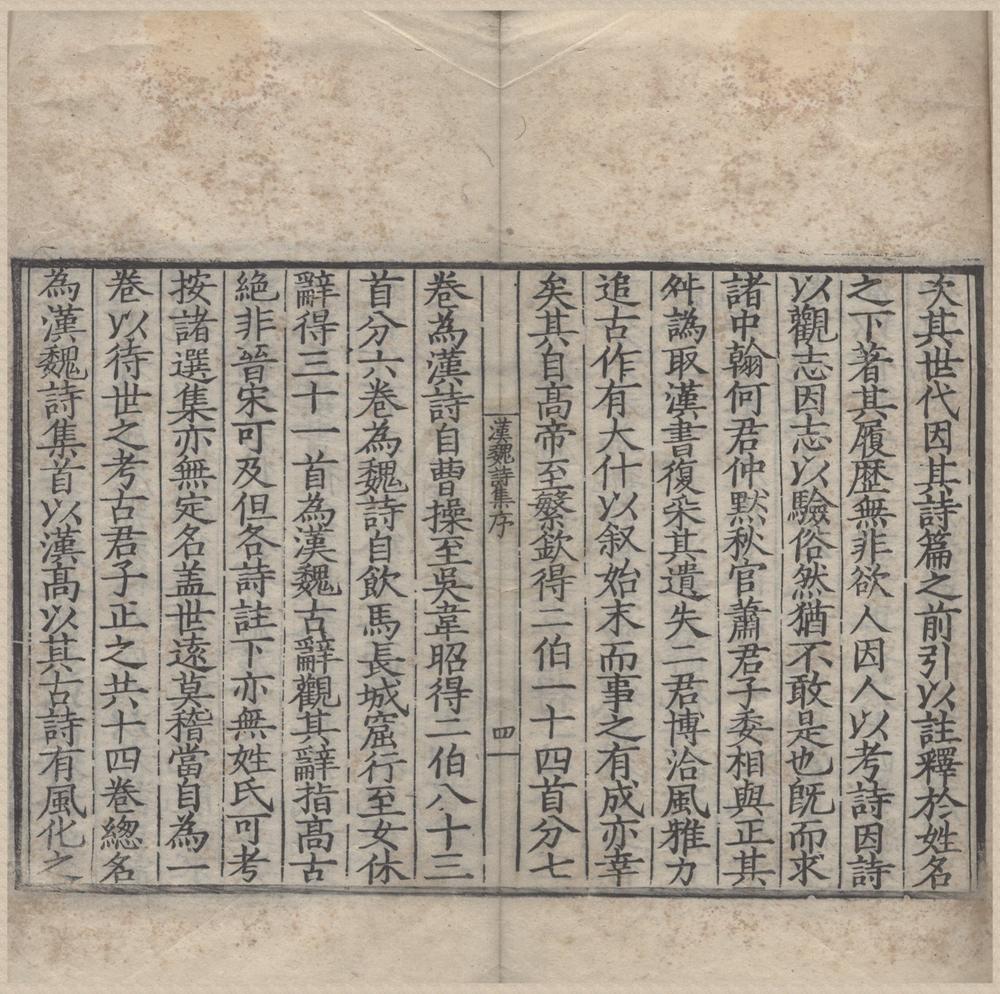 次其世代因其詩篇之前引以註釋於姓名
之下著其履歷無非欲人因人以考詩因詩
以觀志因志以驗俗然猶不敢是也旣而求
諸中翰何君仲默秋官蕭君子委相與正其
舛譌取漢書復采其遺失二君博洽風雅力
追古作有大什以叙始末而事之有成亦幸
矣其自高帝至繁欽得二伯一十四首分七
漢魏詩集序
四
卷為漢詩自曹操至吳韋昭得二伯八十三
首分六卷為魏詩自飲馬長城窟行至女休
辭得三十一首為漢魏古辭觀其辭指高古
絕非晉宋可及但各詩註下亦無姓氏可考
按諸選集亦無定名盖世遠莫稽當自為一
卷以待世之考古君子正之共十四卷緫名
為漢魏詩集首以漢高以其古詩有風化之